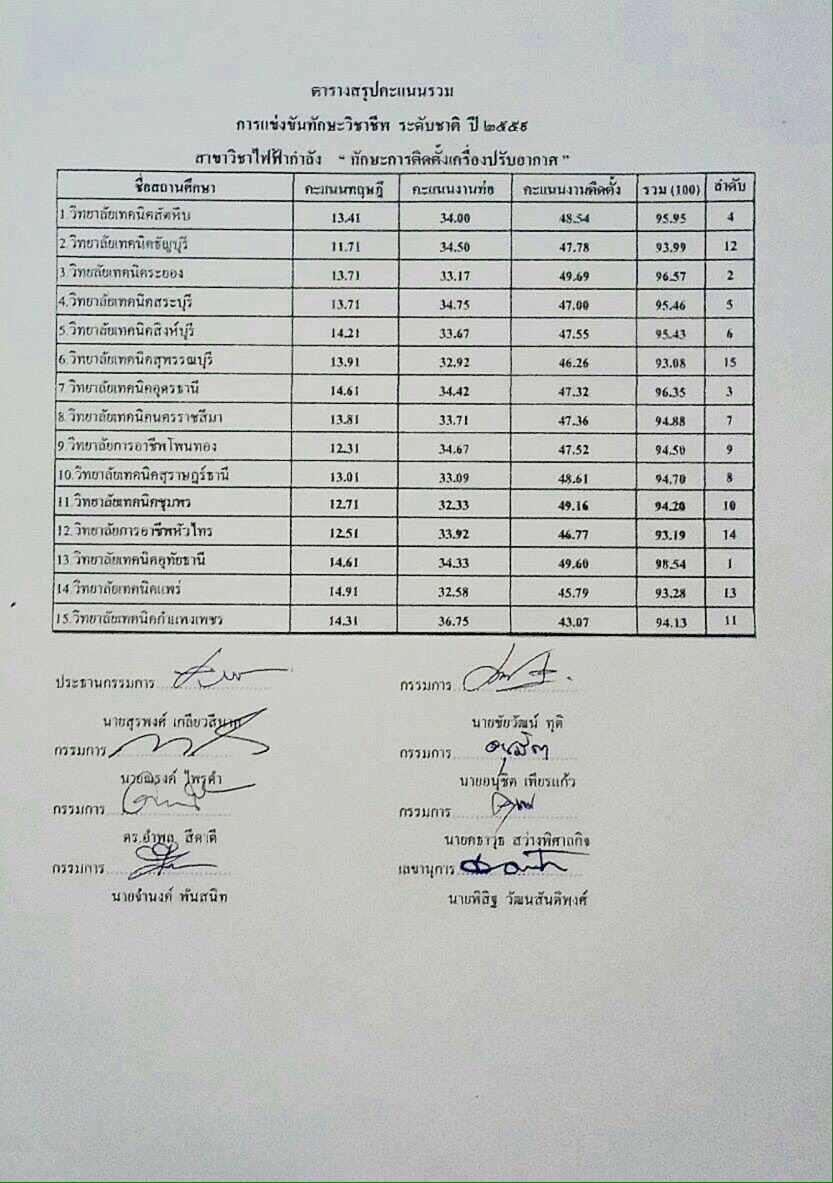 ตารางสรุปคะแนนรวม
การแข่งขันทักษะวิชาชีพ ระดับชาติ ปี ๒๕๕๙
สาขาวิชาไฟฟ้ากำลัง “ ทักษะการติดตั้งเครื่องปรับอากาศ ”
ชื่อสถานศึกษา คะแนนทฤษฎี คะแนนงานท่อ คะแนนงานติดตั้ง รวม (100) ลำดับ
1.วิทยาลัยเทคนิคสัตหีบ 13.41 34.00 48.54 95.95 4
2.วิทยาลัยเทคนิคธัญบุรี 11.71 34.50 47.78 93.99 12
3.วิทยลัยเทคนิคระยอง 13.71 33.17 49.69 96.57 2
4.วิทยาลัยเทคนิคสระบุรี 13.71 34.75 47.00 95.46 5
5.วิทยาลัยเทคนิคสิงห์บุรี 14.21 33.67 47.55 95.43 6
6.วิทยาลัยเทคนิคสุพรรณบุรี 13.91 32.92 46.26 93.08 15
7.วิทยาลัยเทคนิคอุดรธานี 14.61 34.42 47.32 96.35 3
8.วิทยาลัยเทคนิคนครราชสีมา 13.81 33.71 47.36 94.88 7
9.วิทยาลัยการอาชีพโพนทอง 12.31 34.67 47.52 94.50 9
10.วิทยาลัยเทคนิคสุราษฎร์ธานี 13.01 33.09 48.61 94.70 8
11.วิทยาลัยเทคนิคชุมพร 12.71 32.33 49.16 94.20 10
12.วิทยาลัยการอาชีพหัวไทร 12.51 33.92 46.77 93.19 14
13.วิทยาลัยเทคนิคอุทัยธานี 14.61 34.33 49.60 98.54 1
14.วิทยาลัยเทคนิคแพร่ 14.91 32.58 45.79 93.28 13
15.วิทยาลัยเทคนิคกำแพงเพชร 14.31 36.75 43.07 94.13 11
ประธานกรรมการ กรรมการ
นายสุรพงศ์ นายชัยวัฒน์ ทุติ
กรรมการ กรรมการ
นายณรงค์ ไพรคำ นายอนุชิต เพียรแก้ว
กรรมการ กรรมการ
ดร.อำพล สีดาดี นายคธาวุธ สว่างพิศาลกิจ
กรรมการ เลขานุการ
นายจำนงค์ พันสนิท นายพิสิฐ วัฒนสันติพงศ์